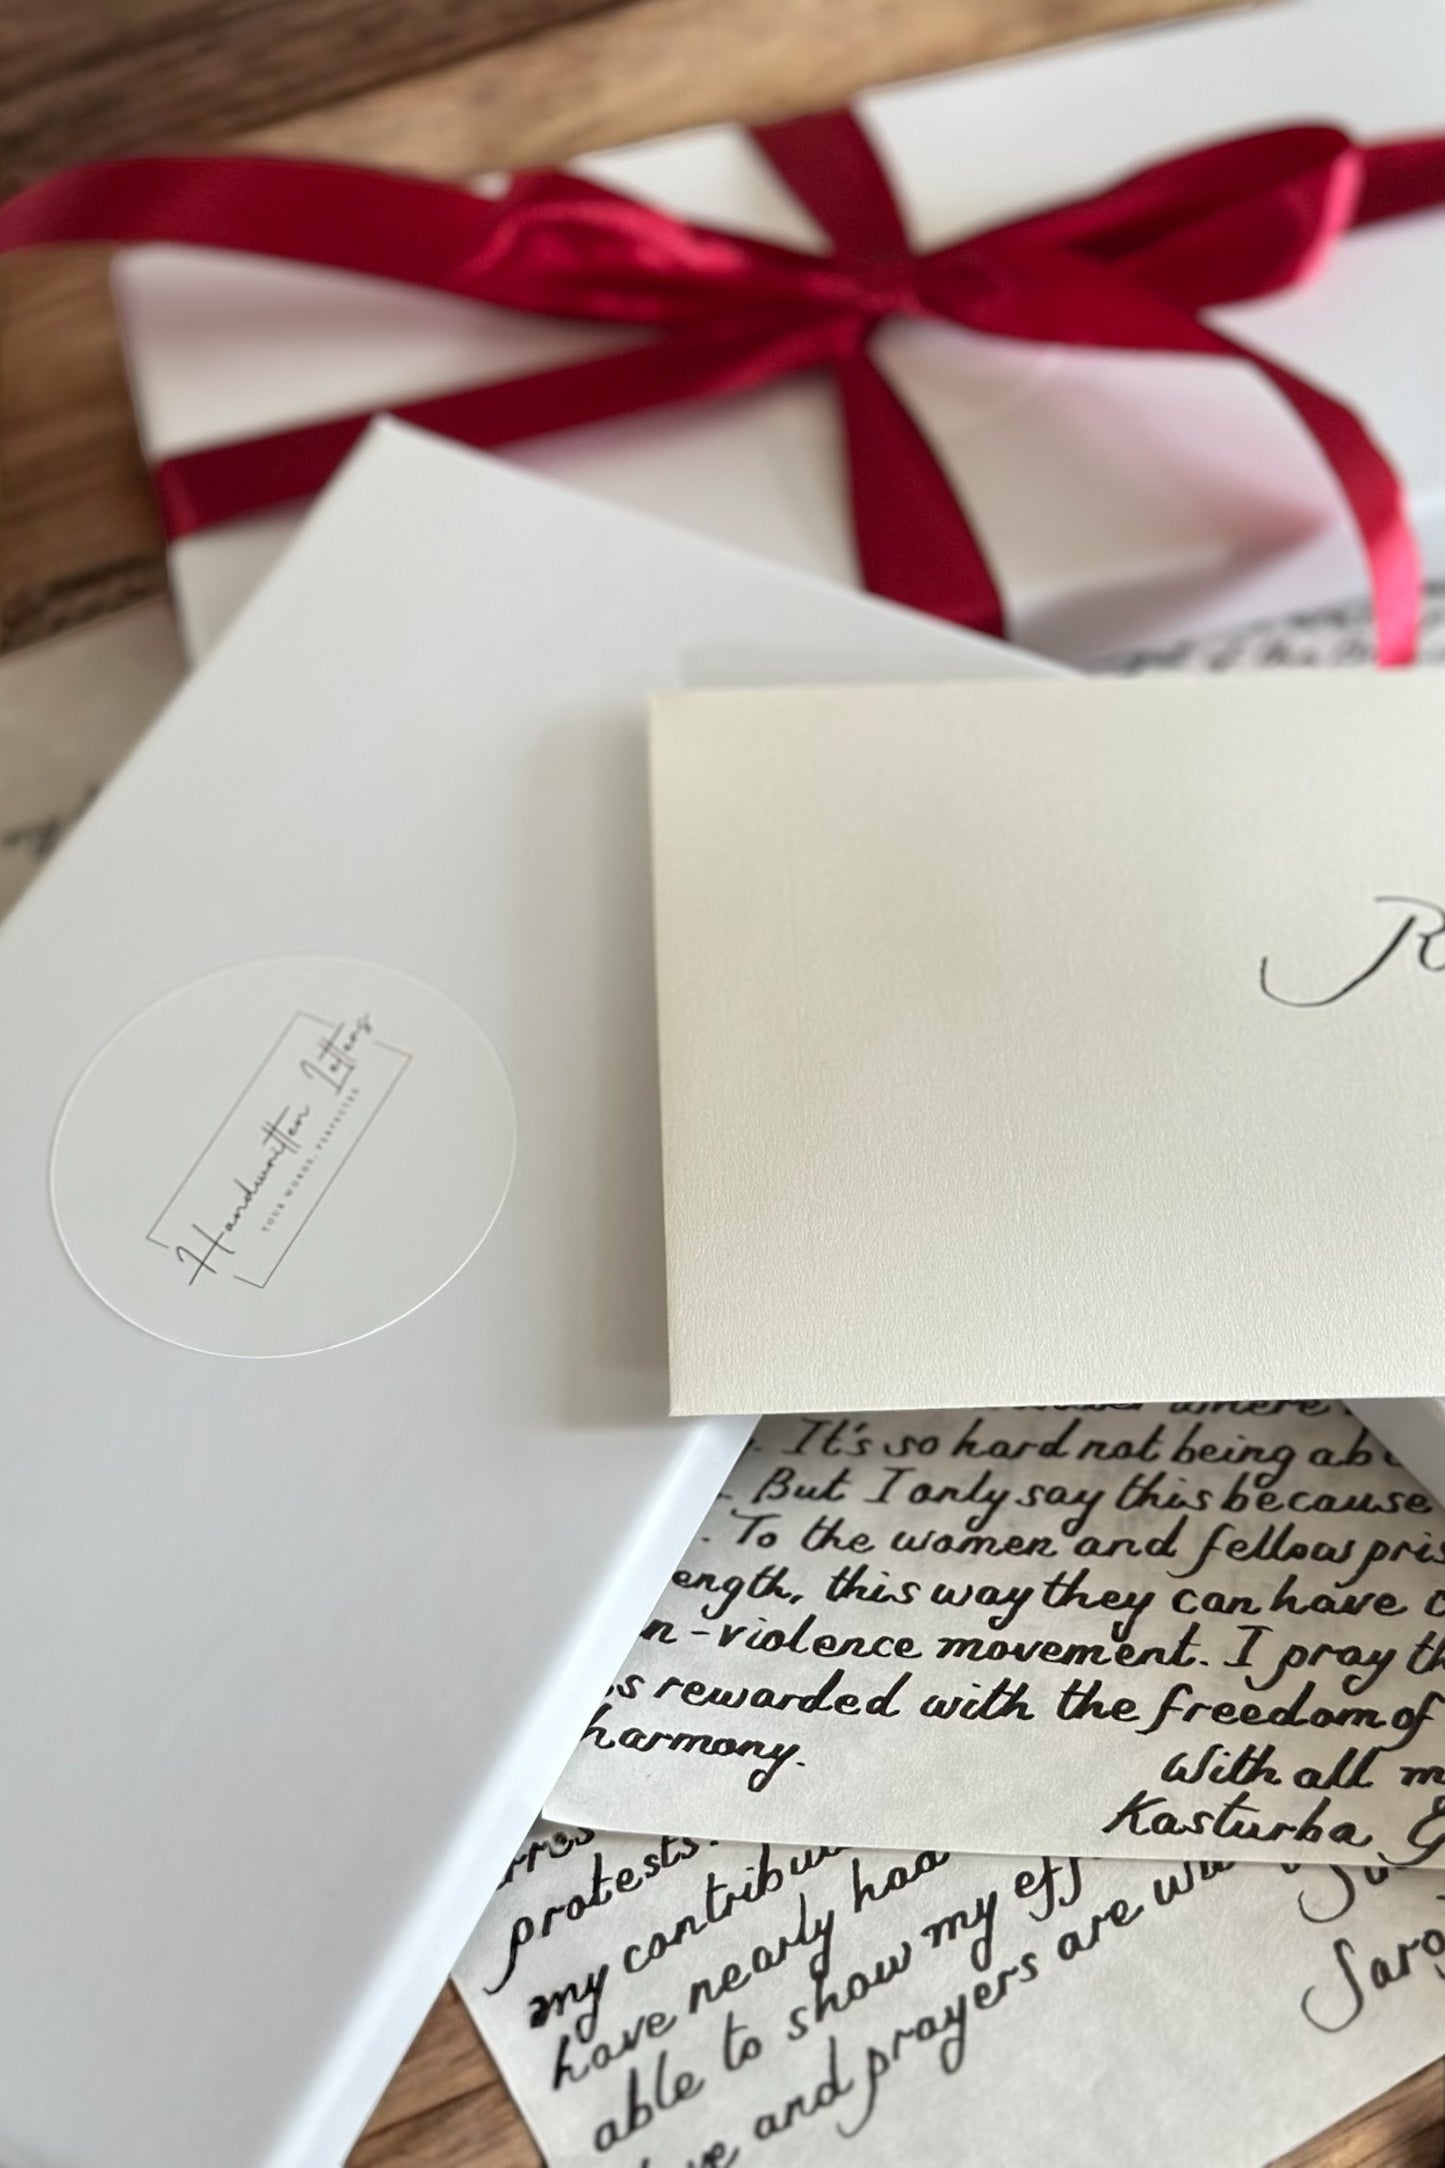 Handwritten Letters
YOUR WORDS, PERFECTED
R
where
. It's so hard not being ab
. But I only say this because
. To the women and fellow pris
ength, this way they can have
n-violence movement. I pray th
s rewarded with the freedom of
harmony.
With all m
Kasturba G
protests.
my contribu
have nearly had
able to show my eff
and prayers are wi
Saro